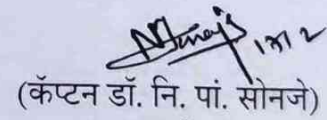 (कॅप्टन डॉ. नि. पां. सोनजे)